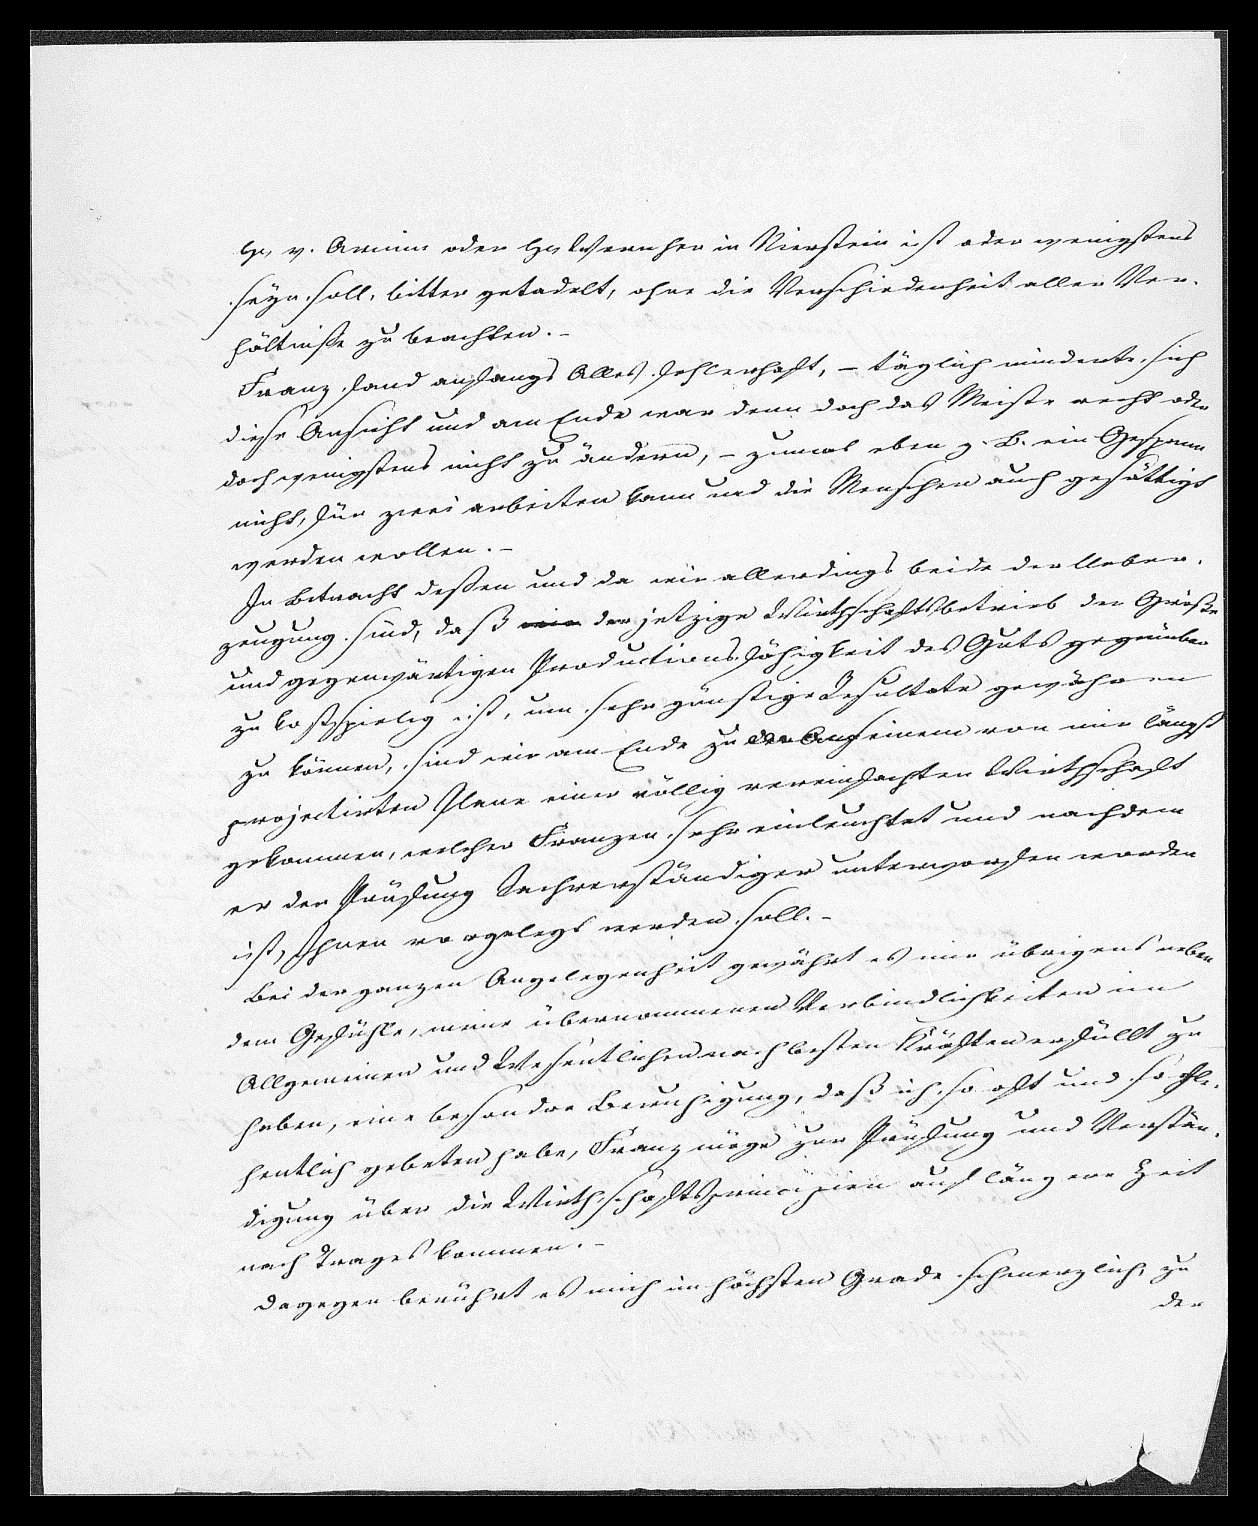 H. v. Arnim oder H. Wernher in Nierstein ist oder wenigstens
seyn soll, bitter getadelt, ohne die Verschiedenheit aller Ver-
hältniße zu beachten. –
Franz fand anfangs Alles fehlerhaft, – täglich minderte sich
diese Ansicht und am Ende war denn doch das Meiste recht oder
doch wenigstens nicht zu ändern, – zumal eben z. B. ein Gespann
nicht für zwei arbeiten kann und die Menschen auch gesättigt
werden wollen. –
In Betracht deßen und da wir allerdings beide der Ueber-
zeugung sind, daß wir der jetzige Wirthschaftsbetrieb der Größe
und gegenwärtigen Productionsfähigkeit des Guts gegenüber
zu kostspielig ist, um sehr günstige Resultate gewähren
zu können, sind wir am Ende zu einem von mir längst
projectirten Plane einer völlig vereinfachten Wirthschaft
gekommen, welcher Franzen sehr einleuchtet und nachdem
er der Prüfung Sachverständiger unterworfen worden
ist, Ihnen vorgelegt werden soll. –
Bei der ganzen Angelegenheit gewährt es mir übrigens neben
dem Gefühle, meine übernommenen Verbindlichkeiten im
Allgemeinen und Wesentlichen nach besten Kräften erfüllt zu
haben, eine besondre Beruhigung, daß ich so oft und so fle-
hentlich gebeten habe, Franz möge zur Prüfung und Verstän-
digung über die Wirthschaftsprincipien auf längere Zeit
nach Trages kommen. –
Dagegen berührt es mich im höchsten Grade schmerzlich, zu
der